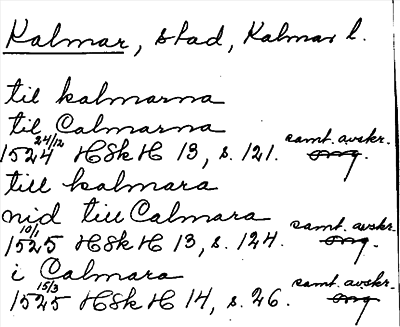 Kalmar, stad, Kalmar l.
til kalmarna
til Calmarna
1524 24/12 HSkH 13, s. 121. samt. avskr. orig.
till kalmara
nid till Calmara
1525 10/1 HSkH 13, s. 124. samt. avskr. orig.
i Calmara
1525 15/3 HSkH 14, s. 26. samt. avskr. orig.